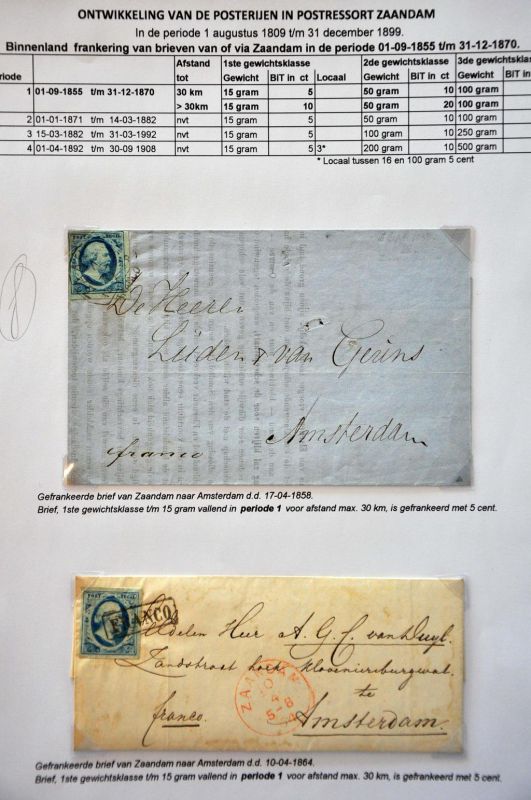 ONTWIKKELING VAN DE POSTERIJEN IN POSTRESSORT ZAANDAM
In de periode 1 augustus 1809 t/m 31 december 1899.
Binnenland frankering van brieven van of via Zaandam in de periode 01-09-1855 t/m 31-12-1870.
Afstand 1ste gewichtsklasse 2de gewichtsklasse 3de gewichtsklasse
riode tot Gewicht BIT in ct Locaal Gewicht BIT in ct Gewicht BIT
1 01-09-1855 t/m 31-12-1870 30 km 15 gram 5 50 gram 10 100 gram
> 30km 15 gram 10 50 gram 20 100 gram
2 01-01-1871 t/m 14-03-1882 nvt 15 gram 5 50 gram 10 100 gram
3 15-03-1882 t/m 31-03-1992 nvt 15 gram 5 100 gram 10 250 gram
4 01-04-1892 t/m 30-09 1908 nvt 15 gram 5 3* 200 gram 10 500 gram
* Locaal tussen 16 en 100 gram 5 cent
De Heeren
Lüden & van Geuns
Amsterdam
franco
Gefrankeerde brief van Zaandam naar Amsterdam d.d. 17-04-1858.
Brief, 1ste gewichtsklasse t/m 15 gram vallend in periode 1 voor afstand max. 30 km, is gefrankeerd met 5 cent.
POST ZEGEL
FRANCO
Heer A. G. C. van Duyl.
Zandstraat hoek Kloveniersburgwal
te
Amsterdam.
franco.
ZAANDAM
10
4
5-8
Gefrankeerde brief van Zaandam naar Amsterdam d.d. 10-04-1864.
Brief, 1ste gewichtsklasse t/m 15 gram vallend in periode 1 voor afstand max. 30 km, is gefrankeerd met 5 cent.